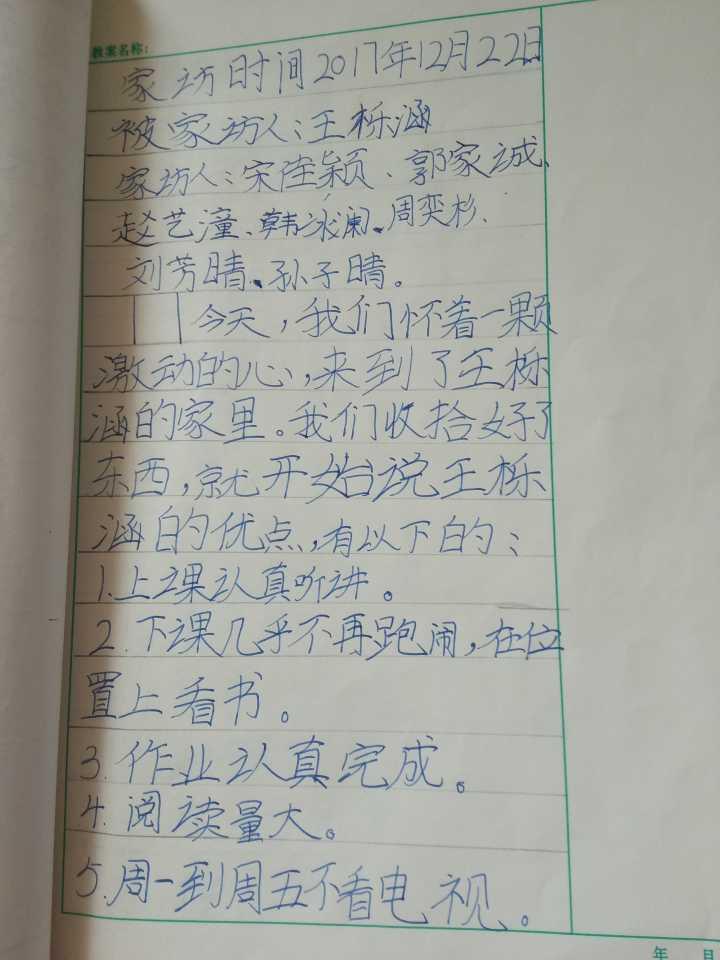 教案名称：
家访时间2017年12月22日
被家访人：王栎涵
家访人：宋佳颖、郭家诚、
赵艺潼、韩冰阑、周奕杉、
刘芳晴、孙子晴。
今天，我们怀着一颗
激动的心，来到了王栎
涵的家里。我们收拾好了
东西，就开始说王栎
涵的优点，有以下的：
1.上课认真听讲。
2.下课几乎不再跑闹，在位
置上看书。
3.作业认真完成。
4.阅读量大。
5.周一到周五不看电视。
年 月